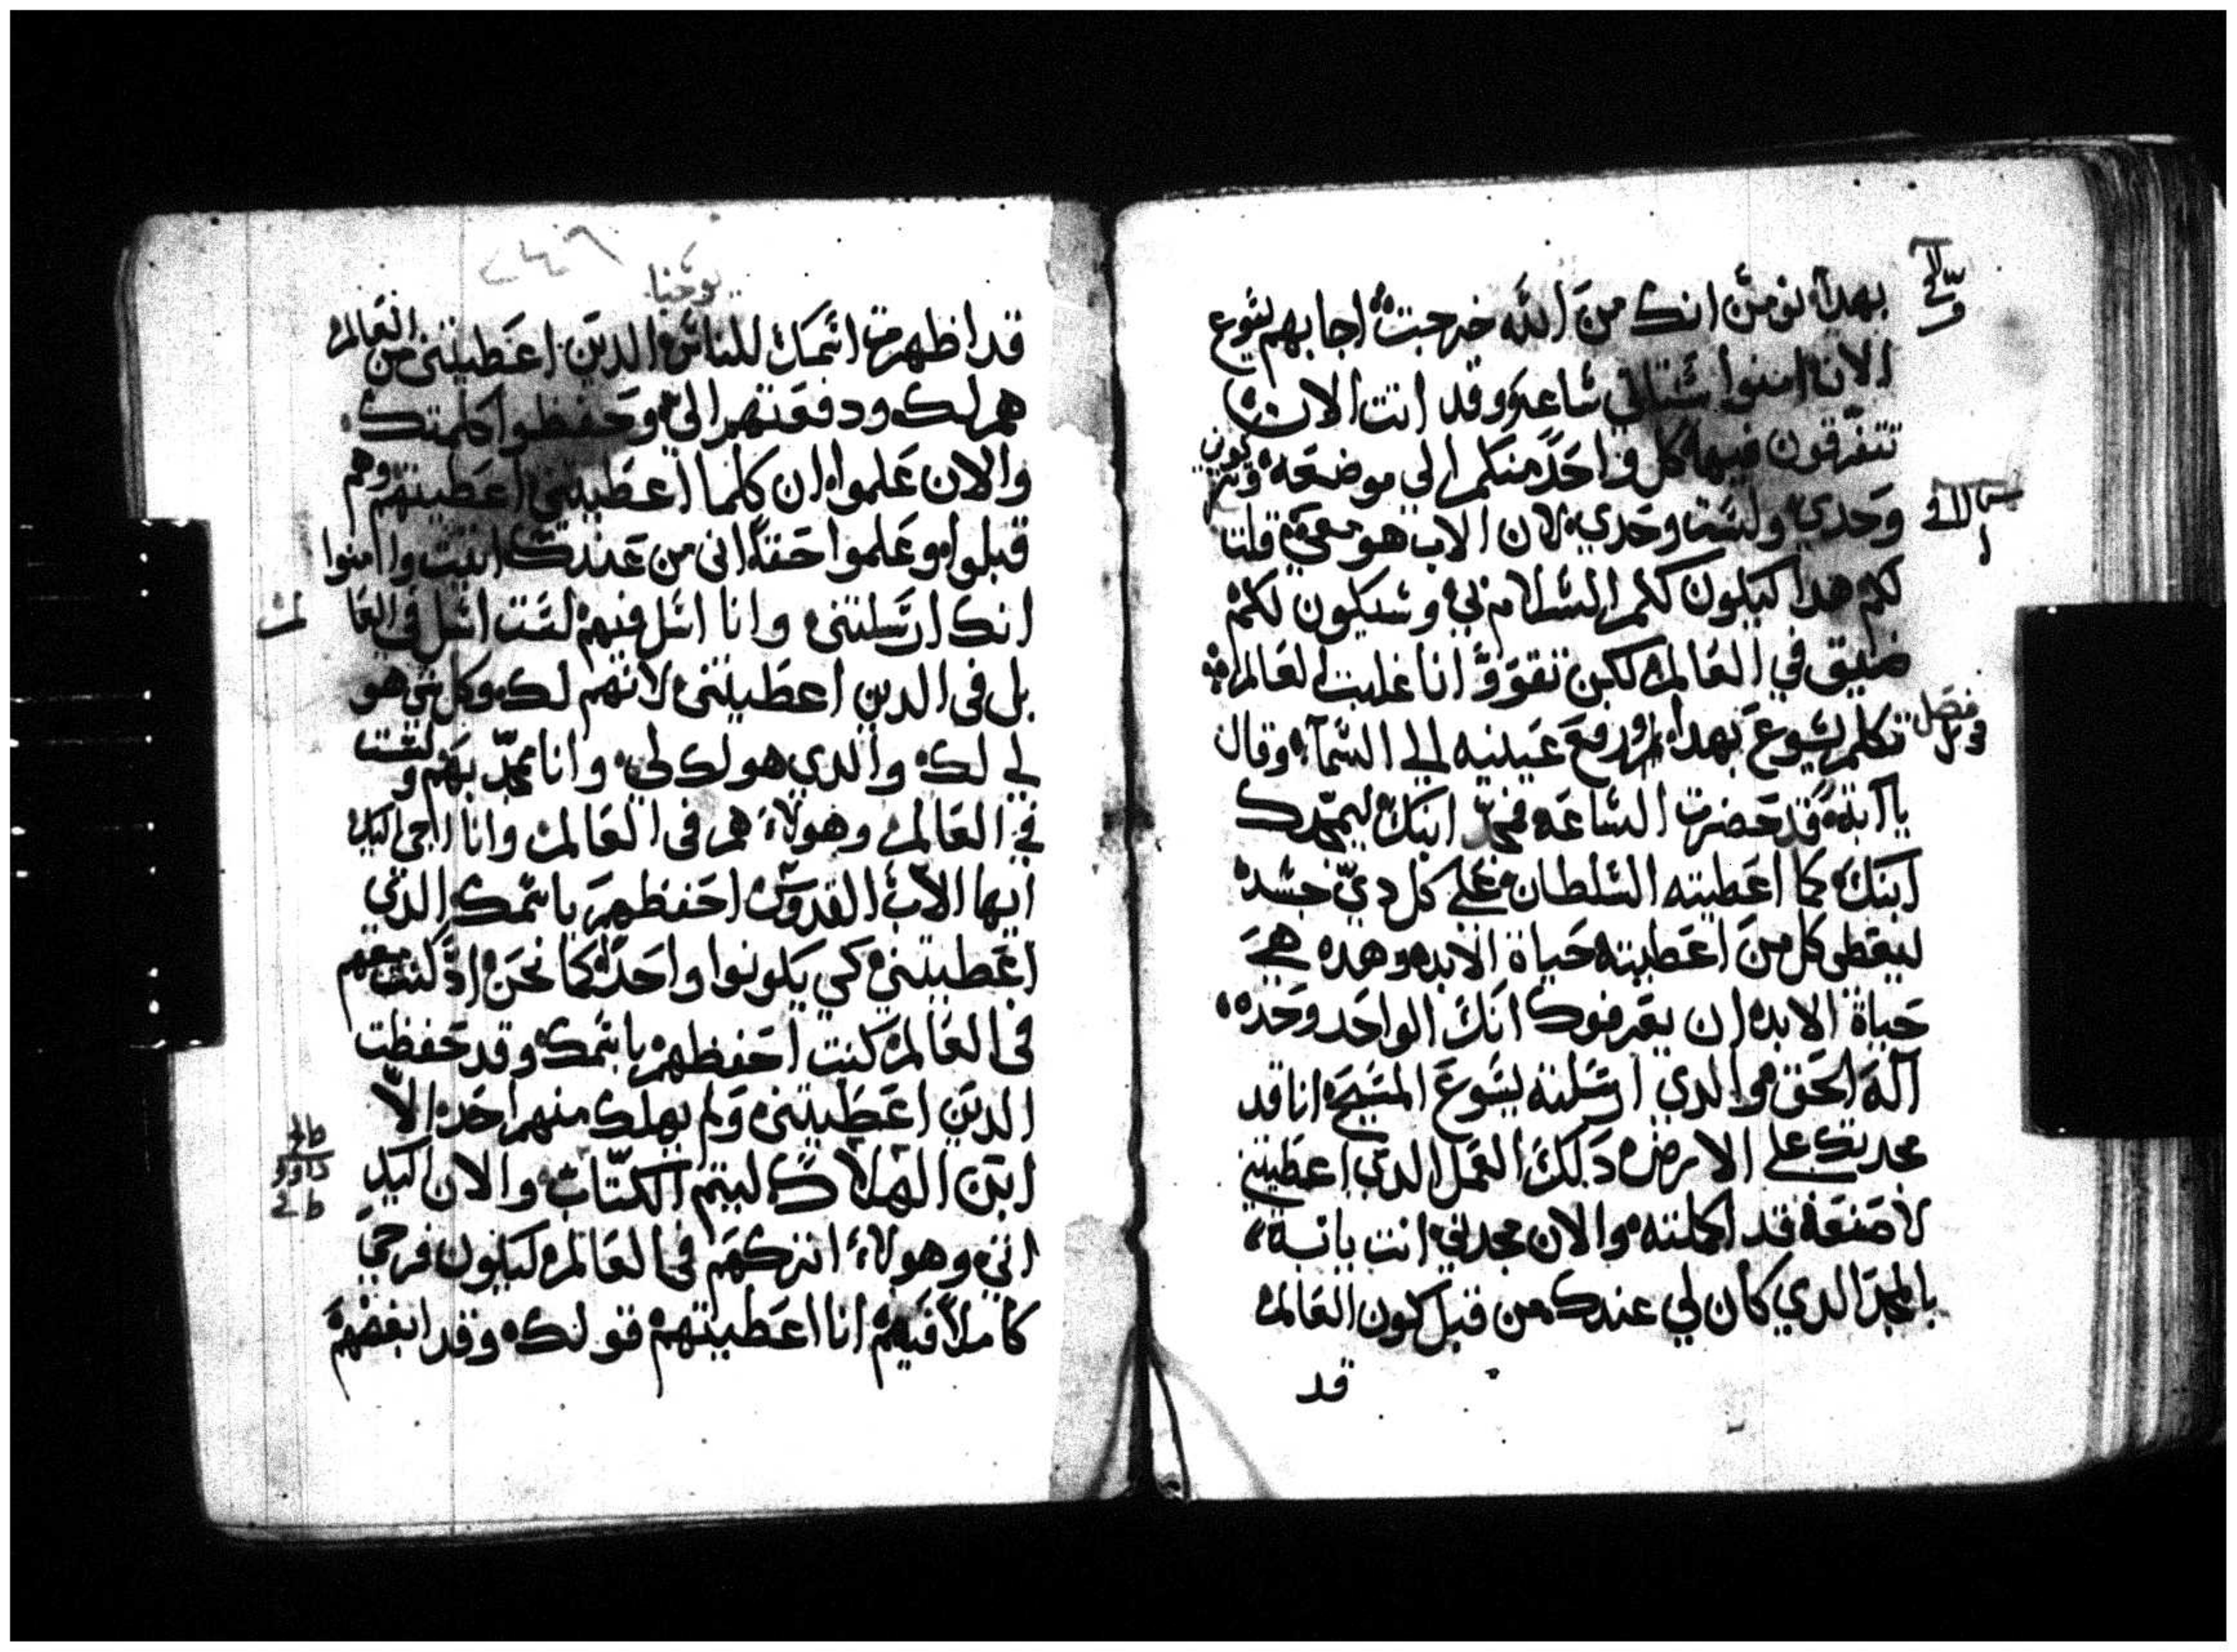 بهدا نومن انك من الله خرجت اجابهم يسوع
الان امنوا ستاتي ساعه وقد اتت الان
تتفرقون فيها كل واحد منكم الي موضعه وتتركوني
وحدي ولست وحدي لان الاب هو معي قلت
لكم هدا ليكون لكم السلام بي وسيكون لكم
ضيق في العالم لكن تقووا انا غلبت العالم
فصل
تكلم يسوع بهدا ورفع عينيه الي السمآ وقال
يا ابة قد حضرت الساعه فمجد ابنك ليمجدك
ابنك كما اعطيته السلطان علي كل دي جسد
ليعطي كل من اعطيته حياة الابد وهده هي
حياة الابد ان يعرفوك انك الواحد وحده
اله الحق والدي ارسلته يسوع المسيح انا قد
مجدتك علي الارض دلك العمل الدي اعطيتني
لاصنعه قد اكملته والان مجدني انت يا ابة
بالمجد الدي كان لي عندك من قبل كون العالم
قد
٢٤٦
يوحنا
قد اظهرت اسمك للناس الدين اعطيتني من العالم
هم لك ودفعتهم الي وحفظوا كلمتك
والان علموا ان كلما اعطيتني اعطيتهم وهم
قبلوا وعلموا حقا اني من عندك اتيت وامنوا
انك ارسلتني وانا اسل فيهم لست اسل في العا
بل في الدين اعطيتني لانهم لك وكل شي هو
لي لك والدي هو لك لي وانا ممجد بهم ولست
في العالم وهولاء هم في العالم وانا اجي اليك
ايها الاب القدوس احفظهم باسمك الدي
اعطيتني كي يكونوا واحدا كما نحن اد كنت معهم
في العالم كنت احفظهم باسمك وقد حفظت
الدين اعطيتني ولم يهلك منهم احد الا
ابن الهلاك ليتم الكتاب والان اليك
اتي وهولاء اتركهم في العالم ليكون فرحي
كاملا فيهم انا اعطيتهم قولك وقد ابغضهم